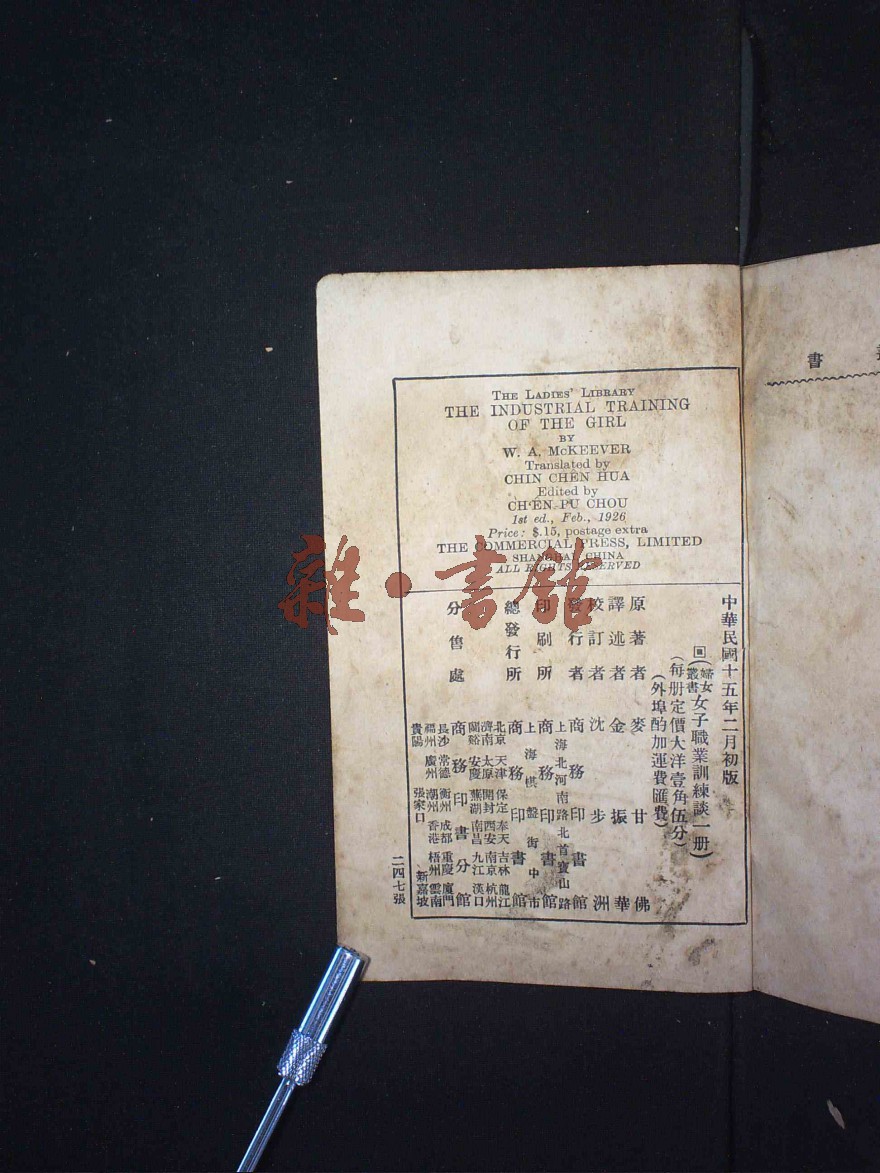 THE LADIES' LIBRARY
THE INDUSTRIAL TRAINING
OF THE GIRL
BY
W. A. McKEEVER
Translated by
CHIN CHEN HUA
Edited by
CH'EN PU CHOU
1st ed., Feb., 1926
Price: $.15, postage extra
THE COMMERCIAL PRESS, LIMITED
SHANGHAI, CHINA
ALL RIGHTS RESERVED
中華民國十五年二月初版
(婦女叢書女子職業訓練談一册)
(每册定價大洋壹角伍分)
(外埠酌加運費匯費)
原著者 麥甘佛
譯述者 金振華
校訂者 沈步洲
發行者 商務印書館
印刷所 上海北河南路北首寶山路
商務印書館
總發行所 上海棋盤街中市
商務印書館
分售處
北京 天津 保定 奉天 吉林 龍江
濟南 太原 開封 西安 南京 杭州
蘭谿 安慶 蕪湖 南昌 九江 漢口
商務印書分館
長沙 常德 衡州 成都 重慶 廈門
福州 廣州 潮州 香港 梧州 雲南
貴陽 張家口 新嘉坡
二四七張
書
雜·書館